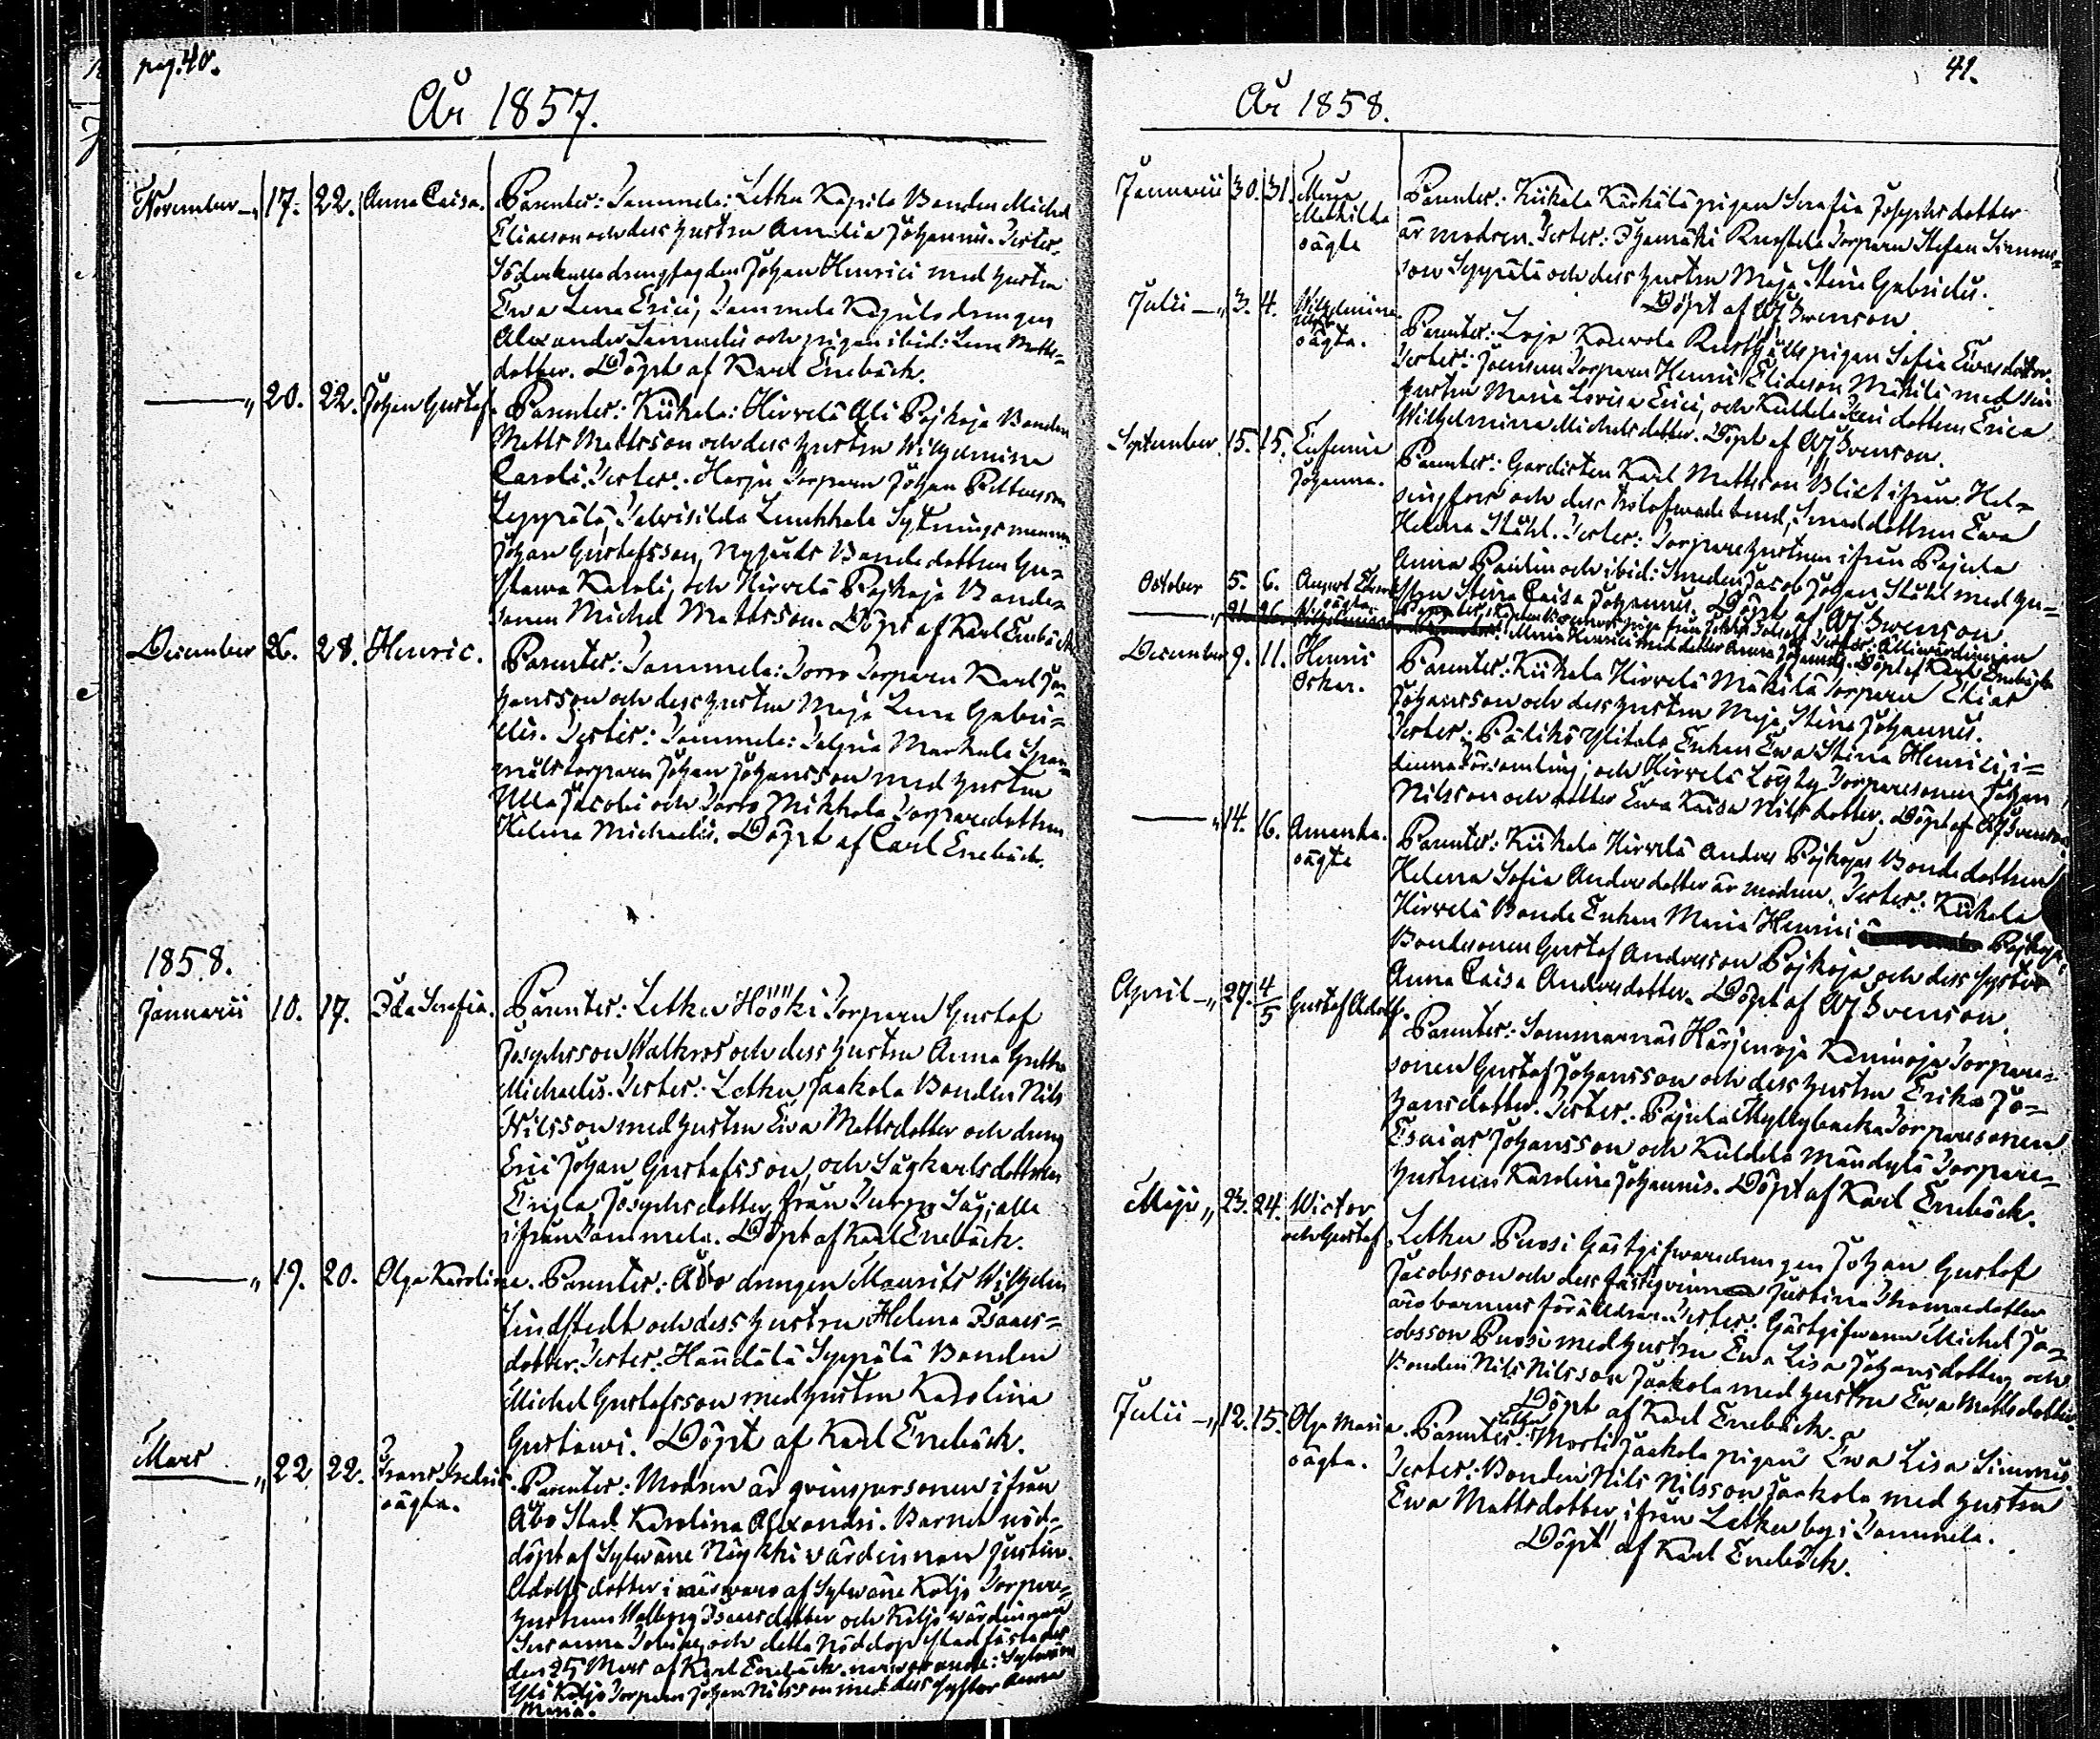 pag. 40.
År 1857.
November — 17. 22. Anna Caisa. Parenter: Tammela: Letku Kapila Bonden Michel
Eliasson och dess hustru Amalia Johannis. Testes:
Söderkulla drengfogden Johan Henrici med hustru
Ewa Lena Erici, Tammela Kapila drengen
Alexander Samuelis och pigan ibid: Lena Matts-
dotter. Döpt af Karl Enebäck.
— 20. 22. Johan Gustaf. Parenter: Kiikala: Hirvelä Ali Pojkoja Bonden
Matts Mattsson och dess hustru Wilhelmina
Caroli. Testes: Harju Torparen Johan
Leppälä, Talvisilda Lunkkala Sytningsmannen
Johan Gustafsson, Nygårds Bondedottren Gu-
stawa Karoli, och Hirvelä Pojkoja Bonde-
sonen Michel Mattsson. Döpt af Karl Enebäck.
December 26. 28. Henric. Parenter: Tammela: Torro Torparen Karl Jo-
hansson och dess hustru Maja Lena Gabri-
elis. Testes: Tammela: Talpia Markula Span-
målstorparen Johan Johansson med hustru
Ulla Jacobi och Torro Mikkola Torparedottren
Helena Michaelis. Döpt af Carl Enebäck.
1858.
Januarii 10. 17. Ida Serafia. Parenter: Letku Hööki Torparen Gustaf
Josephsson Walkros och dess hustru Anna Gretha
Michaelis. Testes: Letku Jaakola Bonden Nils
Nilsson med hustru Ewa Mattsdotter och dreng
Eric Johan Gustafsson, och Sågkarlsdottren
Engla Josephsdotter, från Turpo Såg, alla
ifrån Tammela. Döpt af Karl Enebäck.
— 19. 20. Olga Karolina. Parenter: Åbo drengen Maurits Wilhelm
Lindstedt och dess hustru Helena Isaacs-
dotter. Testes: Handälä Seppälä Bonden
Michel Gustafsson med hustru Karolina
Gustawi. Döpt af Karl Enebäck.
Mars — 22 22. Frans Fredric. Parenter: Modren är qvinspersonen ifrån
oägta. Åbo Stad Karolina Alexandri. Barnet nöd-
döpt af Sylwäne Näykki värdinnan Justin.
Adolfsdotter i närwaro af Sylwäne Koljo Torpare-
hustrun Walborg Isacsdotter och Koljo wärdinnan
Susanna Tobiae, och detta nöddop stadfästades
den 25 Mars af Karl Enebäck. närwarande: Sylwäne
Yli Koljo Torparen Johan Nilsson med dess syster Anna
Maria.
41.
År 1858.
Januarii 30. 31. Maria Parenter: Kiikala Kärkälä pigan Serafia Josephsdotter
Mathilda är modren. Testes: Ihamäki Rusthåls Torparen Stefan Simons-
oägta son Seppälä och dess hustru Maja Stina Gabrielis.
Döpt af Wj Svenson.
Julii — 3. 4. Wilhelmina Parenter: Lojo Kouvola Rusthålls pigan Sofia Ewasdotter.
oägta. Testes: Johansson Torparen Henric Eliasson Mäkilä med sin
hustru Maria Lovisa Erici, och Kuldela Isacidottren Erica
Wilhelmina Michelsdotter. Döpt af Wj Svenson.
September 15. 15. Eufemia Parenter: Gardisten Karl Mattsson Blixt ifrån Hel-
Johanna. singfors och dess trolofwade brud, Smeddottren Ewa
Helena Ståhl. Testes: Torparehustrun ifrån Pajula
Anna Paulin och ibid: Smeden Jacob Johan Ståhl med hu-
October 5. 6. August Edvard stru Stina Caisa Johannis. Döpt af Wj Svenson.
oägta.
Maria Henrici med dotter Anna Johannis. Döpt af Karl Enebäck
December 9. 11. Henric Parenter: Kiikala Hirvelä Mäkilä Torparen Elias
Oskar. Johansson och dess hustru Maja Stina Johannis.
Testes: Pälikö Ylitalo Enkan Ewa Stina Henrici, i
denna församling, och Hirvelä Löyty Torparesonen Johan
Nilsson och dotter Ewa Kaisa Nilsdotter. Döpt af Wj Svenson.
— 14. 16. Amanda. Parenter: Kiikala Hirvelä Anders Pojkojas Bondedottren
oägta Helena Sofia Andersdotter är modren. Testes: Kiikala
Hirvelä Bonde Enkan Maria Henrici Pojkoja,
Bondesonen Gustaf Andersson Pojkoja och dess syster
Anna Caisa Andersdotter. Döpt af Wj Svenson.
April — 27. 4/5 Gustaf Adolf. Parenter: Sommarnäs Härjänoja Kaninoja Torpare-
sonen Gustaf Johansson och dess hustru Erika Jo-
hansdotter. Testes: Pajula Myllybacka Torparesonen
Esaias Johansson och Kuldela Mändylä Torpare-
hustrun Karolina Johannis. Döpt af Karl Enebäck.
Maji 23. 24. Wictor Letku Puosi Gästgifwaredrengen Johan Gustaf
och Gustaf. Jacobsson och dess fästeqvinna Justina Thomasdotter
äro barnens föräldrar. Testes: Gästgifwaren Michel Ja-
cobsson Puosi med hustru Ewa Lisa Johansdotter, och
Bonden Nils Nilsson Jaakola med hustru Ewa Mattsdotter.
Döpt af Karl Enebäck.
Julii — 12. 15. Olga Maria. Parenter: Letku Morti Jaakola pigan Ewa Lisa Simonis.
oägta. Testes: Bonden Nils Nilsson Jaakola med hustru
Ewa Mattsdotter, ifrån Letku by i Tammela.
Döpt af Karl Enebäck.